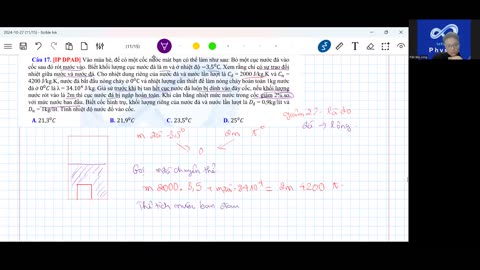 2024-10-27 (11/15) - Scible Ink
(11/15)
Câu 17. [IP DPAD] Vào mùa hè, để có một cốc nước mát bạn có thể làm như sau: Bỏ một cục nước đá vào
cốc sau đó rót nước vào. Biết khối lượng cục nước đá là m và ở nhiệt độ −3,5°C. Xem rằng chỉ có sự trao đổi
nhiệt giữa nước và nước đá. Cho nhiệt dung riêng của nước đá và nước lần lượt là Cđ = 2000 J/kg.K và Cn =
4200 J/kg.K, nước đá bắt đầu nóng chảy ở 0°C và nhiệt lượng cần thiết để làm nóng chảy hoàn toàn 1kg nước
đá ở 0°C là λ = 34.10⁴ J/kg. Giả sử trước khi bị tan hết cục nước đá luôn bị dính vào đáy cốc, nếu khối lượng
nước rót vào là 2m thì cục nước đá bị ngập hoàn toàn. Khi cân bằng nhiệt mức nước trong cốc giảm 2% so
với mức nước ban đầu. Biết cốc hình trụ, khối lượng riêng của nước đá và nước lần lượt là Dđ = 0,9kg/lít và
Dn = 1kg/lít. Tính nhiệt độ nước đổ vào cốc.
A. 21,3°C B. 21,9°C C. 23,5°C D. 25°C
giảm 2% là do
đá → lỏng
m đá -3,5° 2m t°
0
Gọi mđá chuyển thể
m 2000. 3,5 + mđá . 34.10⁴ = 2m 4200 t.
Thể tích nước ban đầu